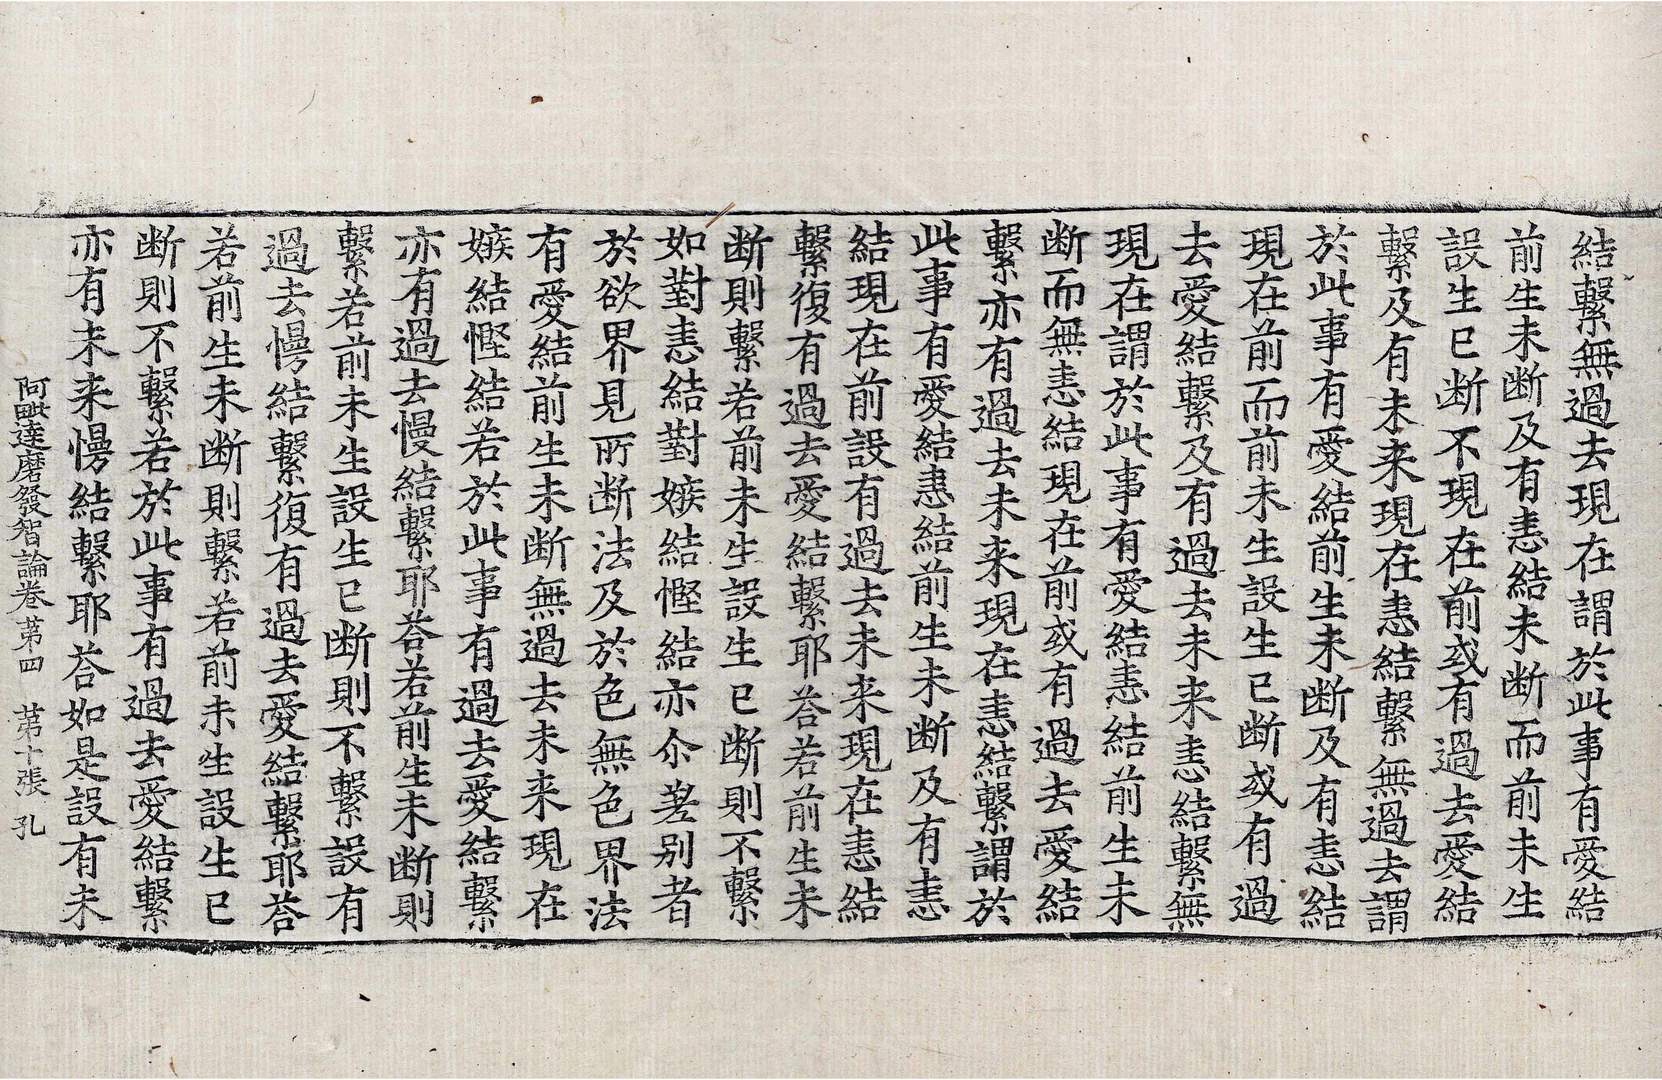 結繫無過去現在謂於此事有愛結
前生未断及有恚結未断而前未生
設生已断不現在前或有過去愛結
繫及有未来現在恚結繫無過去謂
於此事有愛結前生未断及有恚結
現在前而前未生設生已断或有過
去愛結繫及有過去未来恚結繫無
現在謂於此事有愛結恚結前生未
断而無恚結現在前或有過去愛結
繫亦有過去未来現在恚結繫謂於
此事有愛結恚結前生未断及有恚
結現在前設有過去未来現在恚結
繫復有過去愛結繫耶荅若前生未
断則繫若前未生設生已断則不繫
如對恚結對嫉結慳結亦尒差别者
於欲界見所断法及於色無色界法
有愛結前生未断無過去未来現在
嫉結慳結若於此事有過去愛結繫
亦有過去慢結繫耶荅若前生未断則
繫若前未生設生已断則不繫設有
過去慢結繫復有過去愛結繫耶荅
若前生未断則繫若前未生設生已
断則不繫若於此事有過去愛結繫
亦有未来慢結繫耶荅如是設有未
阿毗達磨發智論卷苐四 苐十張 孔